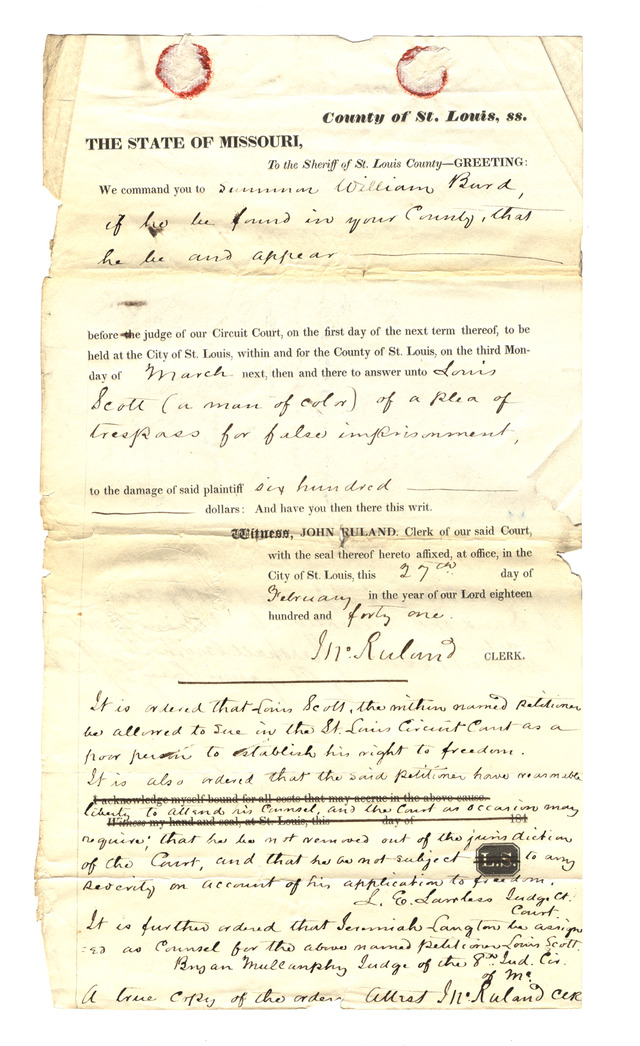 County of St. Louis, ss.
THE STATE OF MISSOURI,
To the Sheriff of St. Louis County—GREETING:
We command you to summon William Burd,
if he be found in your County, that
he be and appear
before the judge of our Circuit Court, on the first day of the next term thereof, to be
held at the City of St. Louis, within and for the County of St. Louis, on the third Mon-
day of March next, then and there to answer unto Louis
Scott (a man of color) of a plea of
trespass for false imprisonment,
to the damage of said plaintiff six hundred
dollars: And have you then there this writ.
Witness, JOHN RULAND. Clerk of our said Court,
with the seal thereof hereto affixed, at office, in the
City of St. Louis, this 27th day of
February in the year of our Lord eighteen
hundred and forty one.
Jno. Ruland CLERK.
It is ordered that Louis Scott, the within named petitioner
be allowed to sue in the St. Louis Circuit Court as a
poor person to establish his right to freedom.
It is also ordered that the said petitioner have reasonable
I acknowledge myself bound for all costs that may accrue in the above cause.
liberty to attend his Counsel, and the Court as occasion may
Witness my hand and seal, at St. Louis, this day of 184
require; that he be not removed out of the jurisdiction
of the Court, and that he be not subject L.S. to any
severity on account of his application to freedom.
L. E. Lawless Judge Ct.
Court.
It is further ordered that Jeremiah Langton be assign
=ed as Counsel for the above named petitioner Louis Scott.
Bryan Mullanphy Judge of the 8th Jud. Cir.
of Mo.
A true copy of the orders Attest Jno. Ruland Clk